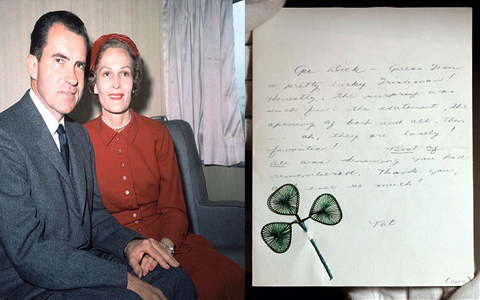 Dick – Guess I'm
a pretty lucky Irishman!
Honestly, the surprise was
such fun – the excitement, the
opening of box and all, then
ah, they are lovely!
favorites! Best of
all was knowing you had
remembered. Thank you,
ever so much!
Pat
(over)